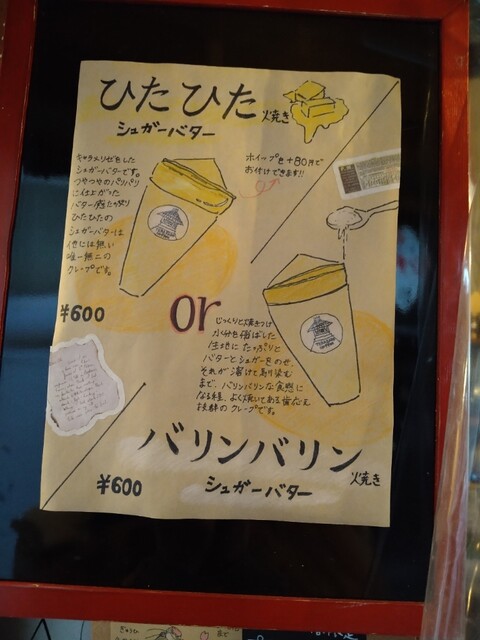 ひたひた
焼き
シュガーバター
キャラメリゼをした
シュガーバターです。
つやつやのパリパリ
に仕上がった
バター感たっぷり
ひたひたの
シュガーバターは
他には無い
唯一無二の
クレープです。
ホイップを+80円で
お付けできます!!
¥600
or
じっくりと焼きつけ
水分を飛ばした
生地にたっぷりと
バターとシュガーをのせ、
それが溶けて染み込む
まで、バリンバリンな食感に
なる程、よく焼いてある歯応え
抜群のクレープです。
バリンバリン
焼き
¥600
シュガーバター